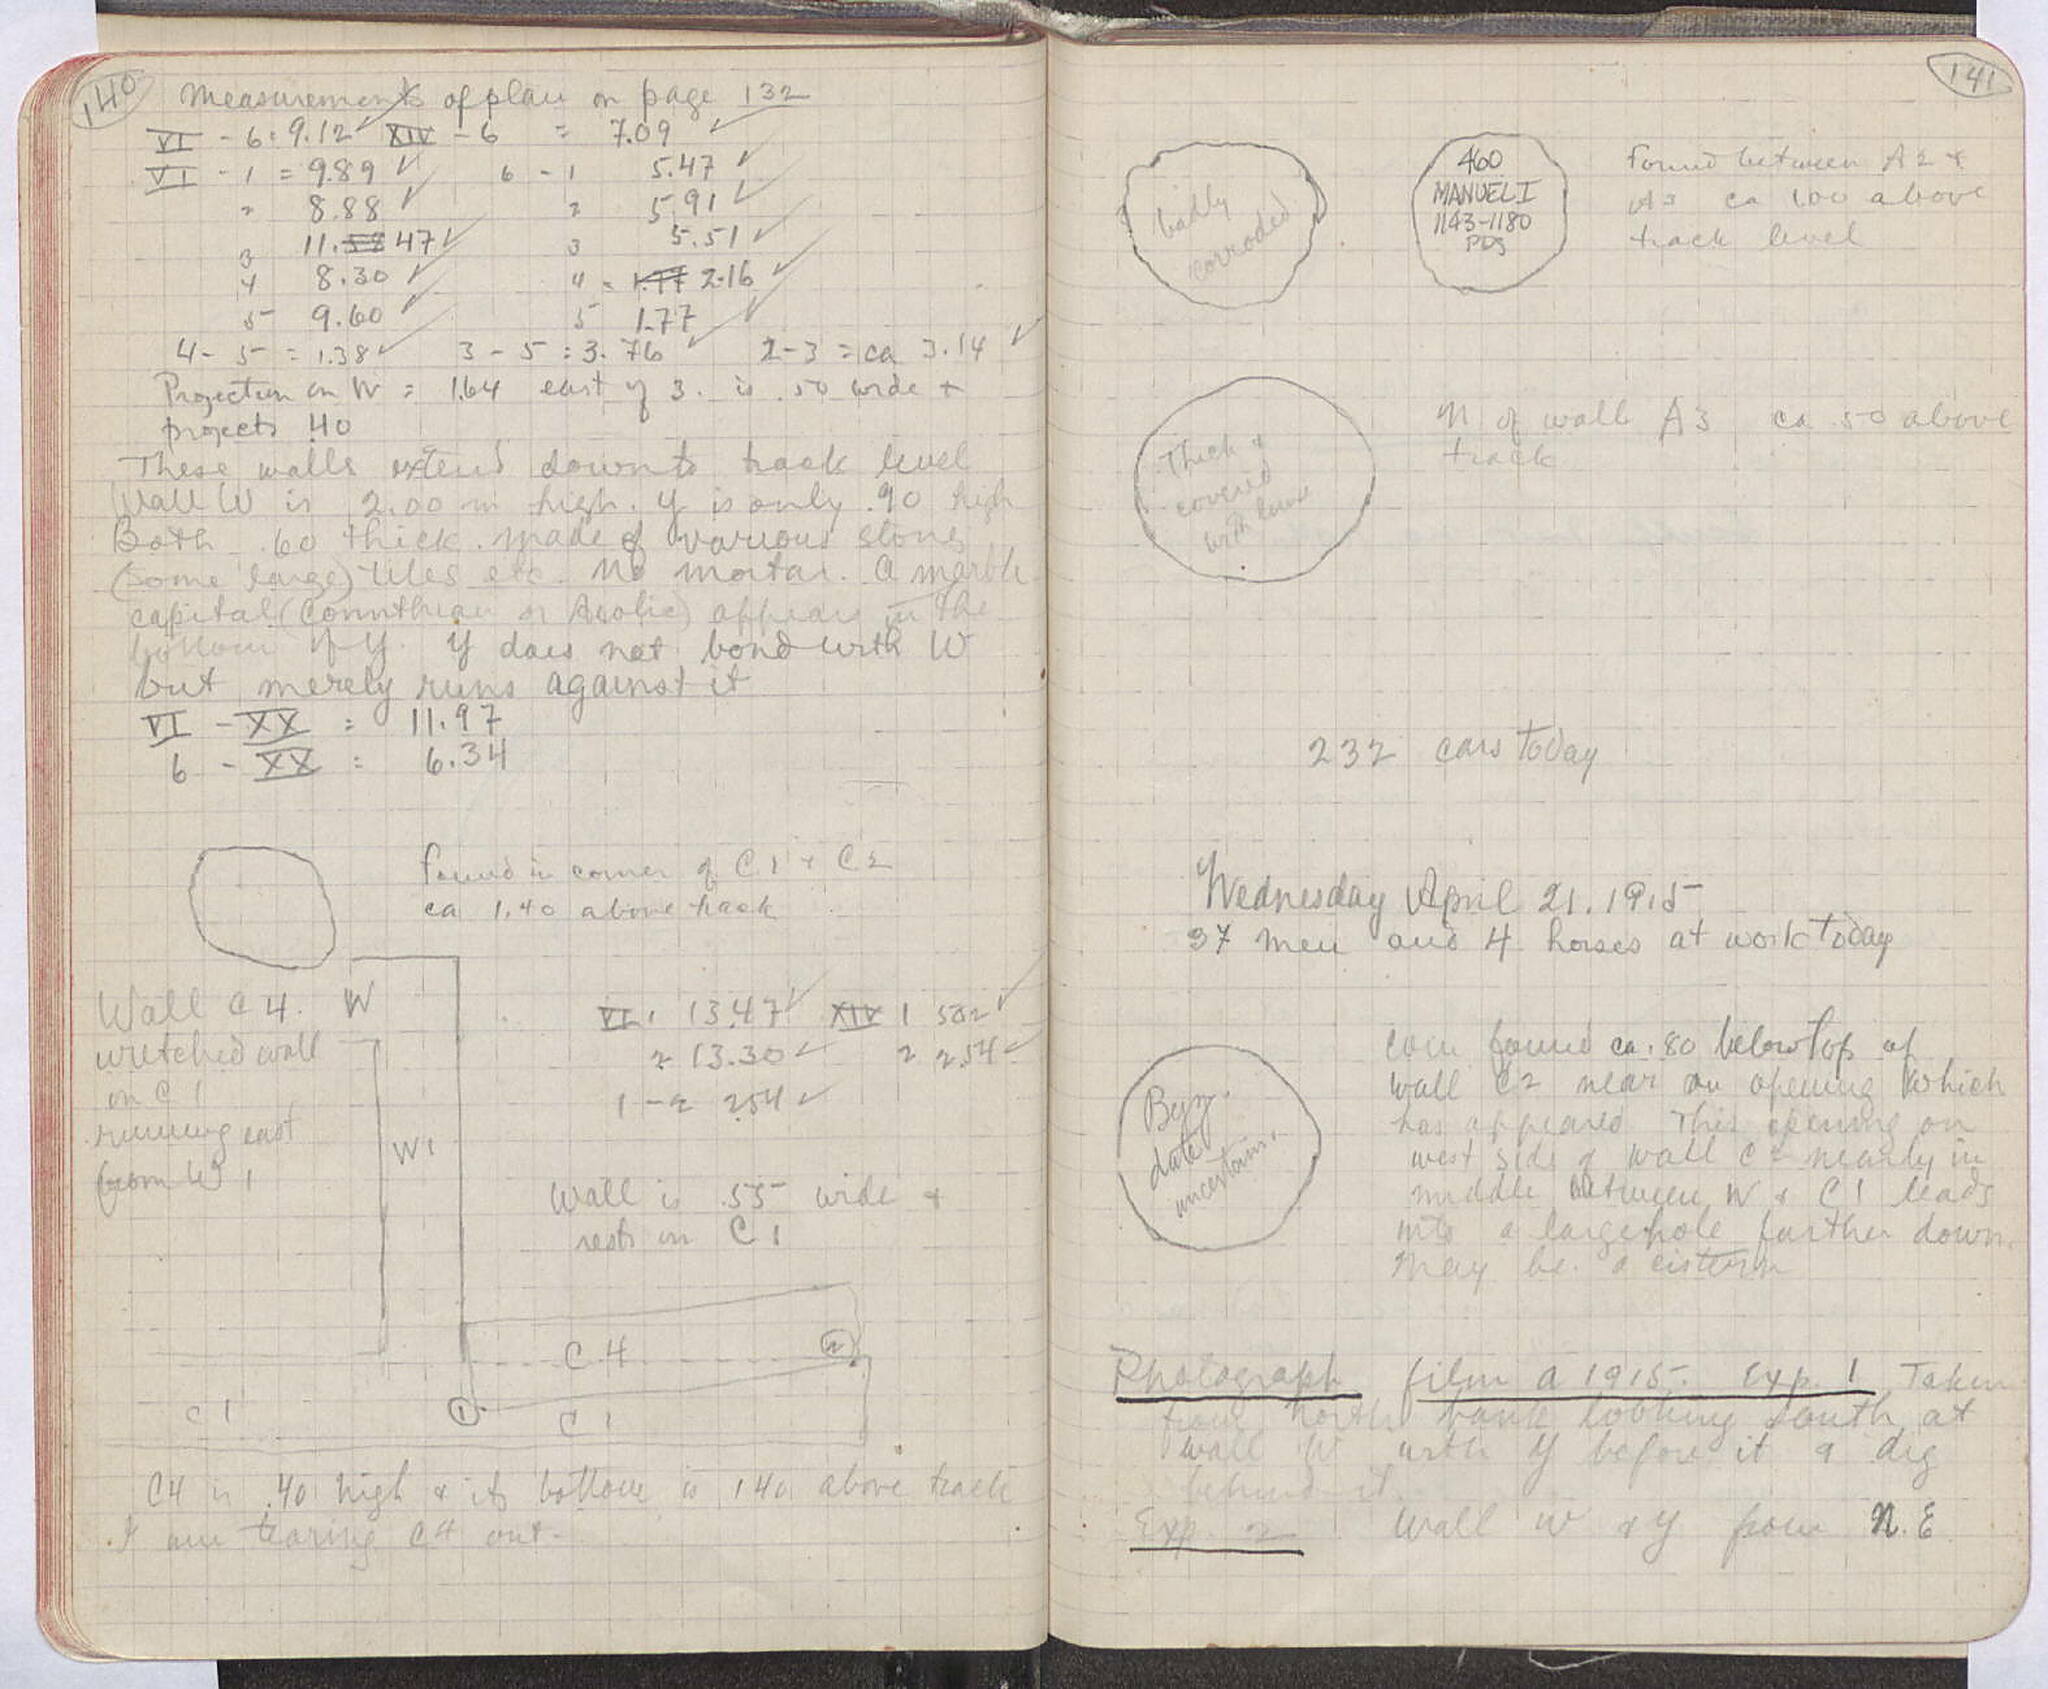 140
Measurements of plan on page 132
VI - 6 = 9.12 XIV - 6 = 7.09
VI - 1 = 9.89 6 - 1 5.47
2 8.88 2 5.91
3 11.58 47 3 5.51
4 8.30 4 = 1.77 2.16
5 9.60 5 1.77
4 - 5 = 1.38 3 - 5 = 3.76 2 - 3 = ca 3.14
Projection on W = 1.64 east of 3. is .50 wide +
projects .40
These walls extend down to track level
Wall W is 2.00 m high. Y is only .90 high
Both .60 thick. made of various stones
(some large) tiles etc. No mortar. A marble
capital (Corinthian or Aeolic) appears in the
bottom of Y. Y does not bond with W
but merely runs against it
VI - XX = 11.97
6 - XX = 6.34
found in corner of C 1 + C 2
ca 1.40 above track
Wall C 4. W
wretched wall
on C 1
running east
from W 1
VI 1 13.47 XIV 1 5.02
2 13.30 2 2.54
1 - 2 2.54
W 1
Wall is .55 wide +
rests on C 1
C 4 2
C 1 1 C 1
C4 is .40 high + its bottom is 1.40 above track
I am tearing C4 out.
141
badly
corroded
460
MANUEL I
1143-1180
PDS
found between A 2 +
A 3 ca 1.00 above
track level
Thick +
covered
with lime
N of wall A 3 ca .50 above
track
232 cars today
Wednesday April 21. 1915
37 men and 4 horses at work today
Byz.
date
uncertain.
coin found ca .80 below top of
wall C2 near an opening which
has appeared This opening on
west side of wall C 2 nearly in
middle between W + C 1 leads
into a large hole further down.
May be a cistern
Photograph film A 1915. Exp. 1 Taken
from North bank looking South at
wall W with Y before it & dig
behind it.
Exp. 2 Wall W + Y from N. E